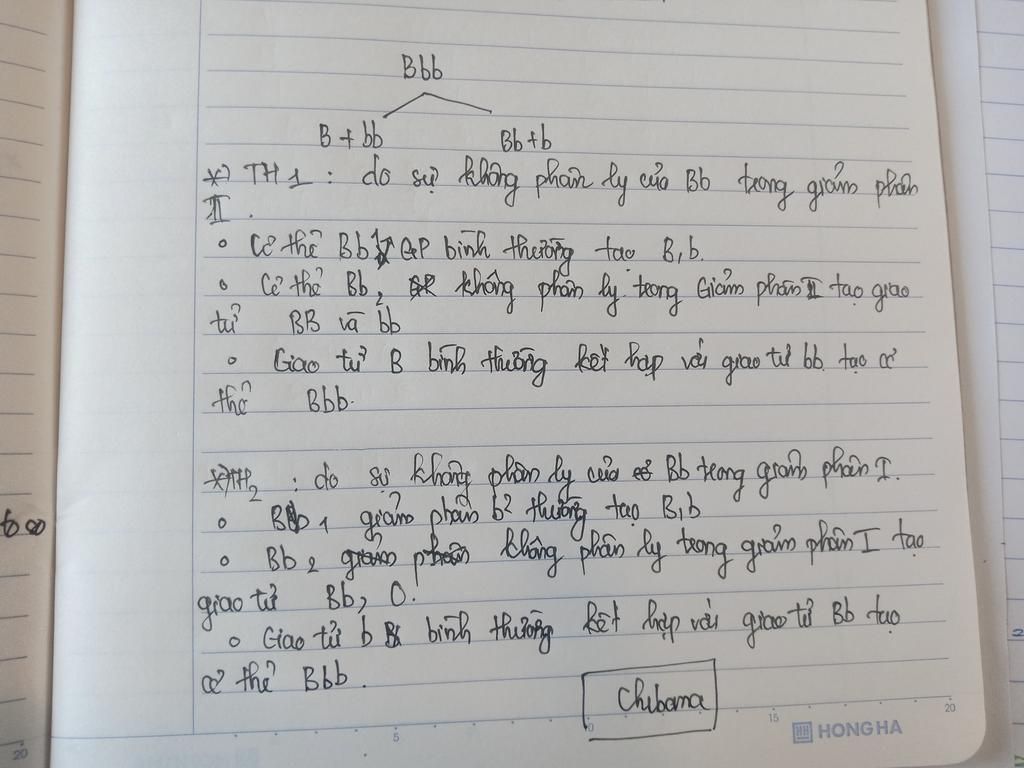 Bbb
B + bb
Bb + b
*) TH1 : do sự không phân ly của Bb trong giảm phân
II.
• Cơ thể Bb1 GP bình thường tạo B, b.
• Cơ thể Bb2 không phân ly trong Giảm phân II tạo giao
tử BB và bb
• Giao tử B bình thường kết hợp với giao tử bb tạo cơ
thể Bbb.
*) TH2 : do sự không phân ly của Bb trong giảm phân I.
• Bb1 giảm phân b² thường tạo B, b
• Bb2 không phân ly trong giảm phân I tạo
giao tử Bb, O.
• Giao tử b bình thường kết hợp với giao tử Bb tạo
cơ thể Bbb.
Chibana
5
10
15
20
HONG HA
20
2